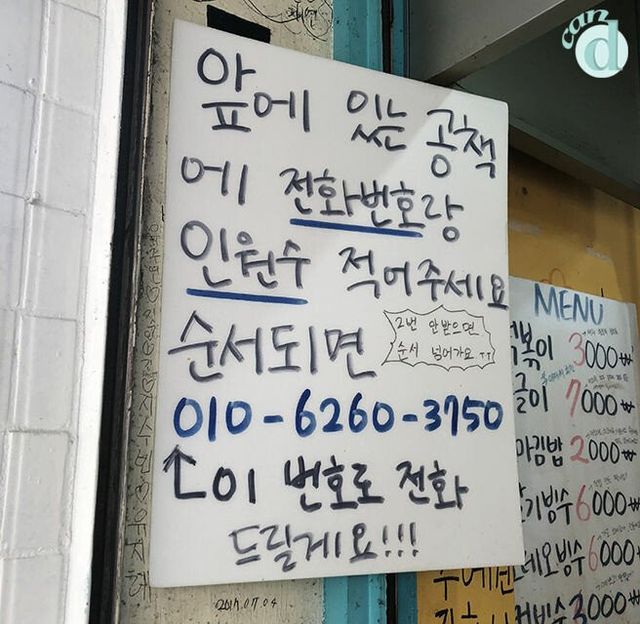 can
d
앞에 있는 공책
에 전화번호랑
인원수 적어주세요
순서되면
2번 안받으면
순서 넘어가요 ㅠㅠ
010-6260-3750
↑이 번호로 전화
드릴게요!!!
2017.07.04
MENU
볶이 3000₩
7000₩
김밥 2000₩
기빙수 6000₩
네오빙수 6000₩
빙수 3000₩